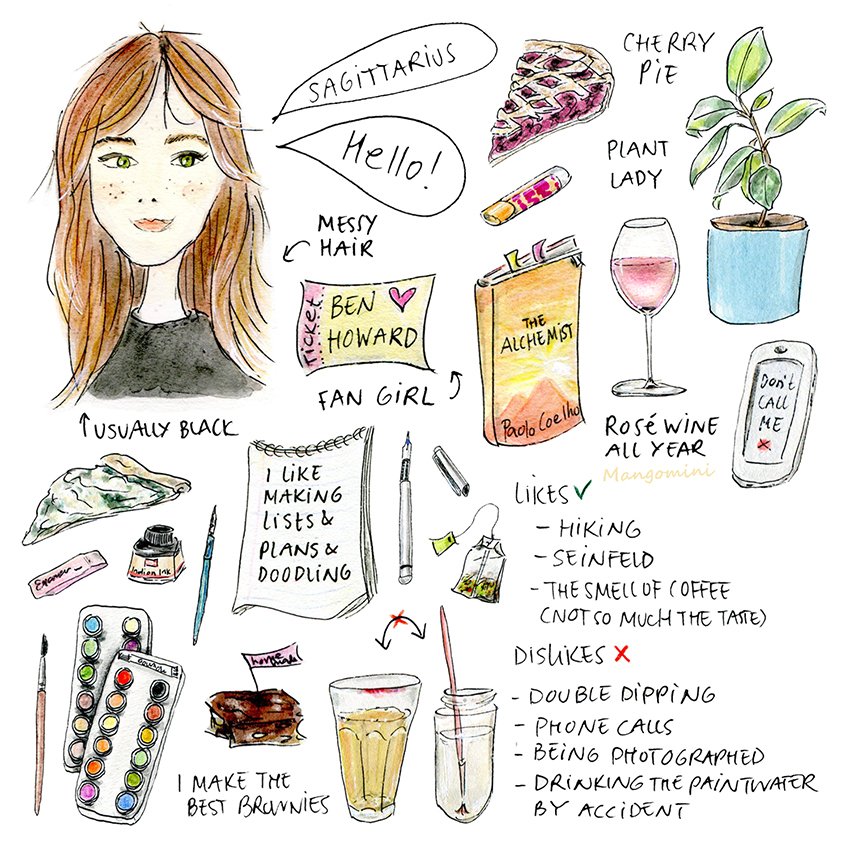 SAGITTARIUS
Hello!
CHERRY
PIE
PLANT
LADY
MESSY
HAIR
Ticket
BEN
HOWARD
FAN GIRL
THE
ALCHEMIST
Paolo Coelho
ROSÉ WINE
ALL YEAR
Mangomini
Don't
CALL
ME
USUALLY BLACK
I LIKE
MAKING
LISTS &
PLANS &
DOODLING
Indian Ink
LIKES
- HIKING
- SEINFELD
- THE SMELL OF COFFEE
(NOT SO MUCH THE TASTE)
DISLIKES
- DOUBLE DIPPING
- PHONE CALLS
- BEING PHOTOGRAPHED
- DRINKING THE PAINTWATER
BY ACCIDENT
home
made
I MAKE THE
BEST BROWNIES